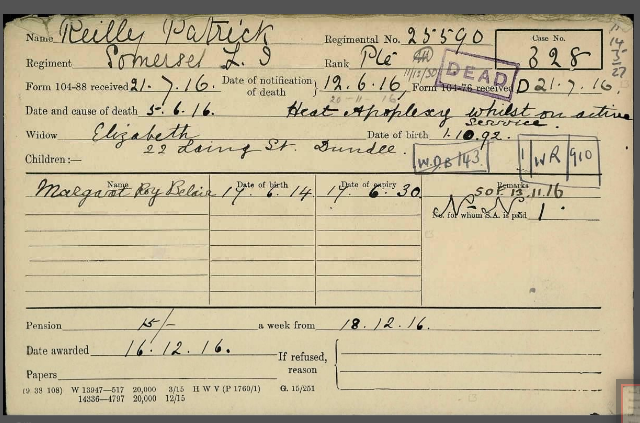 Name Reilly Patrick Regimental No. 25590 Case No. 328
Regiment Somerset L. I Rank Pte
DEAD
Form 104-88 received 21.7.16. Date of notification of death 12.6.16 Form 104-76 received D 21.7.16.
Date and cause of death 5.6.16. Heat Apoplexy whilst on active service.
Widow Elizabeth Date of birth 1.10.92.
22 Laing St. Dundee.
Children:—
W.R 910
Name Date of birth Date of expiry Remarks
Margaret Roy 17.6.14 17.6.30 13.11.16
No. for whom S.A. is paid 1.
Pension 15/- a week from 18.12.16.
Date awarded 16.12.16.
If refused, reason
Papers
(9 38 108) W 13947—517 20,000 3/15 H W V (P 1760/1) G. 15/251
14336—4797 20,000 12/15